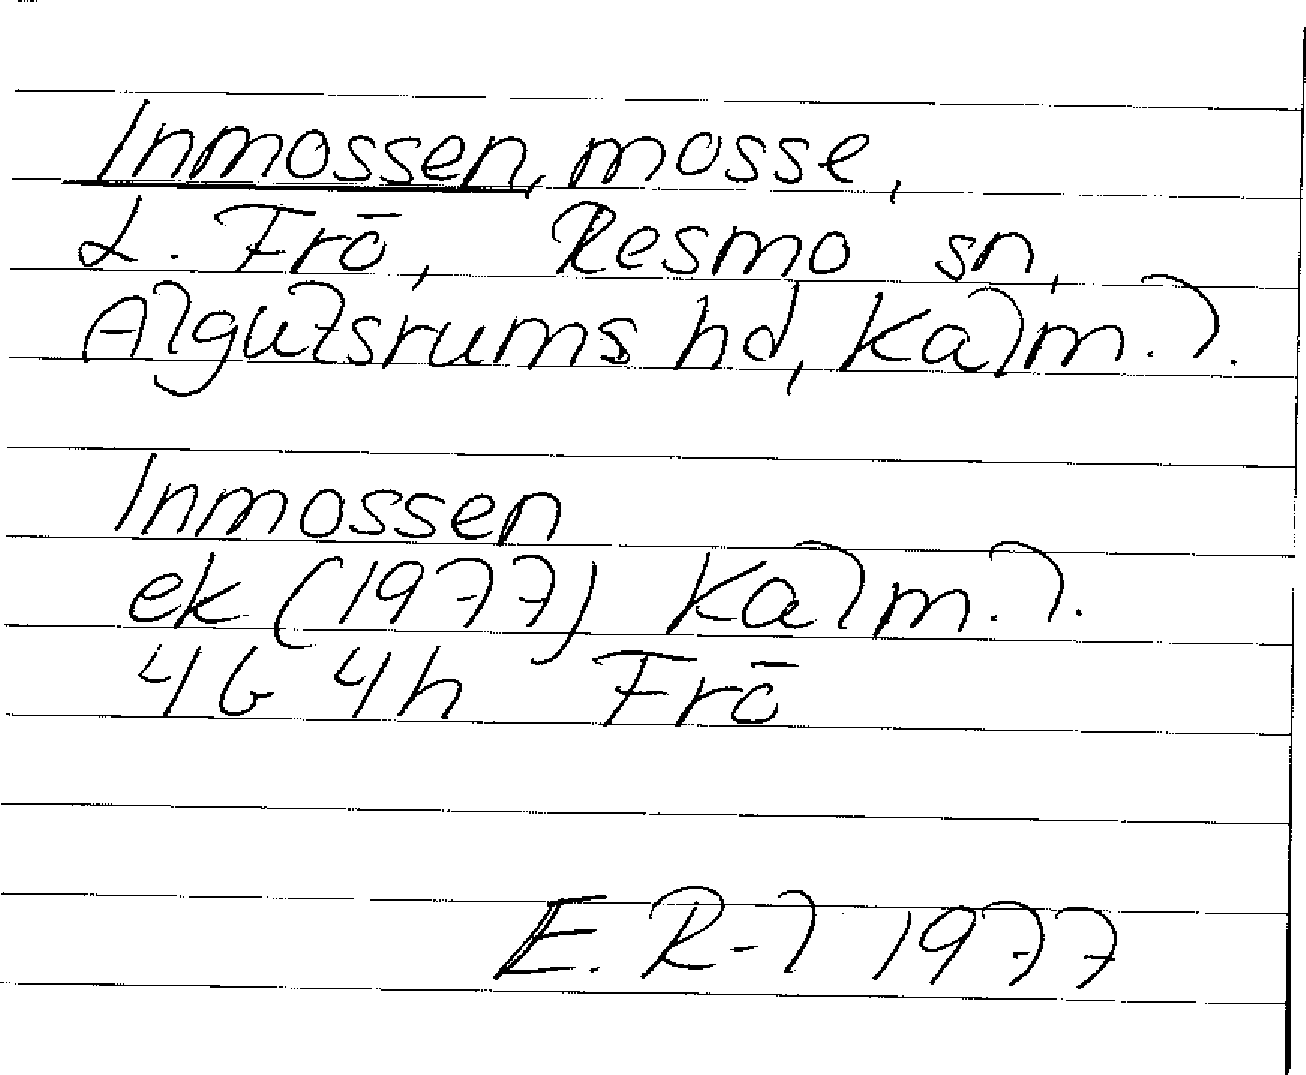 Inmossen, mosse,
L. Frö, Resmo sn,
Algutsrums hd, Kalm. l.
Inmossen
ek (1977) Kalm. l.
4G 4h Frö
E. R-l 1977